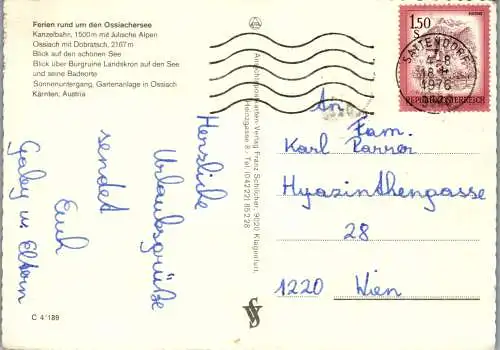 Ferien rund um den Ossiachersee
Kanzelbahn, 1500 m mit Julische Alpen
Ossiach mit Dobratsch, 2167 m
Blick auf den schönen See
Blick über Burgruine Landskron auf den See
und seine Badeorte
Sonnenuntergang, Gartenanlage in Ossiach
Kärnten, Austria
Herzliche
Urlaubsgrüße
sendet
Euch
Gaby u. Eltern
C 4'189
Ansichtspostkarten-Verlag Franz Schilcher, 9020 Klagenfurt,
Heinzgasse 8 · Tel. (04222) 85 2 28
1.50
S
REPUBLIK ÖSTERREICH
SATTENDORF
1976
An
Fam.
Karl Parrer
Hyazinthengasse
28
1220 Wien